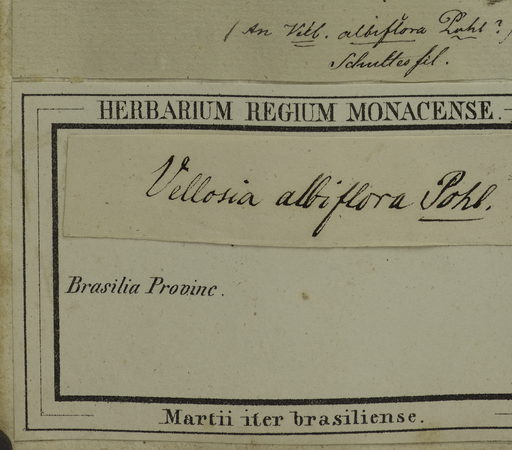 (An Vell. albiflora Pohl?)
Schultes fil.
HERBARIUM REGIUM MONACENSE.
Vellosia albiflora Pohl.
Brasilia Provinc.
Martii iter brasiliense.